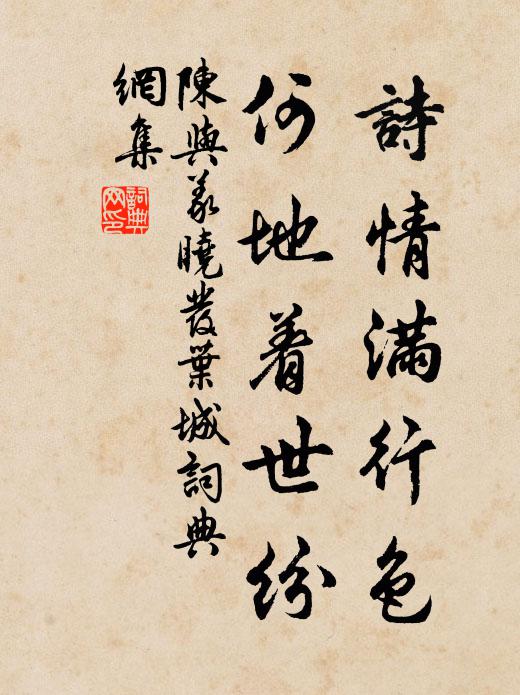 詩情滿行色
何地着世紛
陳與義曉發葉城詞典
網集
詞典
网印